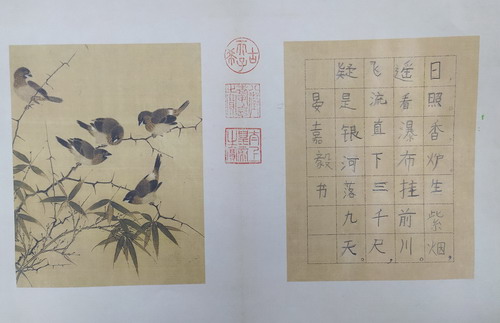 日照香炉生紫烟,
遥看瀑布挂前川。
飞流直下三千尺,
疑是银河落九天。
晏嘉毅书
古希天子